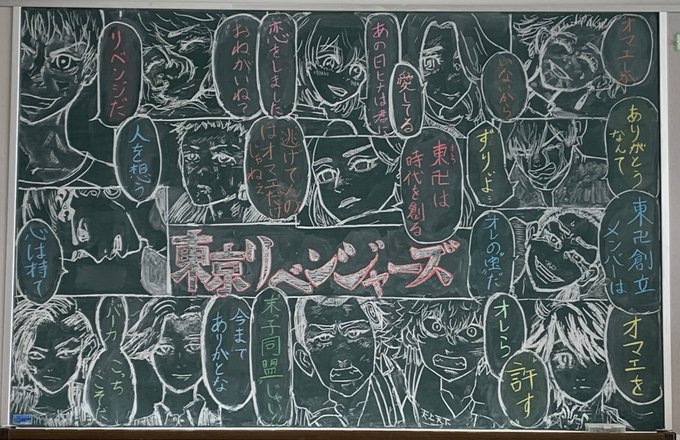 いないから
あの日ヒナは君に
愛してる
恋をしました
おねがいね?
リベンジだ
ありがとう
なんて
ずりぃよ…
東卍は
時代を創る
逃げてんの
はオマエだけ
じゃねえ
人を想う
心は持て
東卍創立
メンバーは
オレの宝だ
東京リベンジャーズ
オマエを
オレら
許す
末子同盟じゃい
今まで
ありがとな
バーカこっち
こそだ